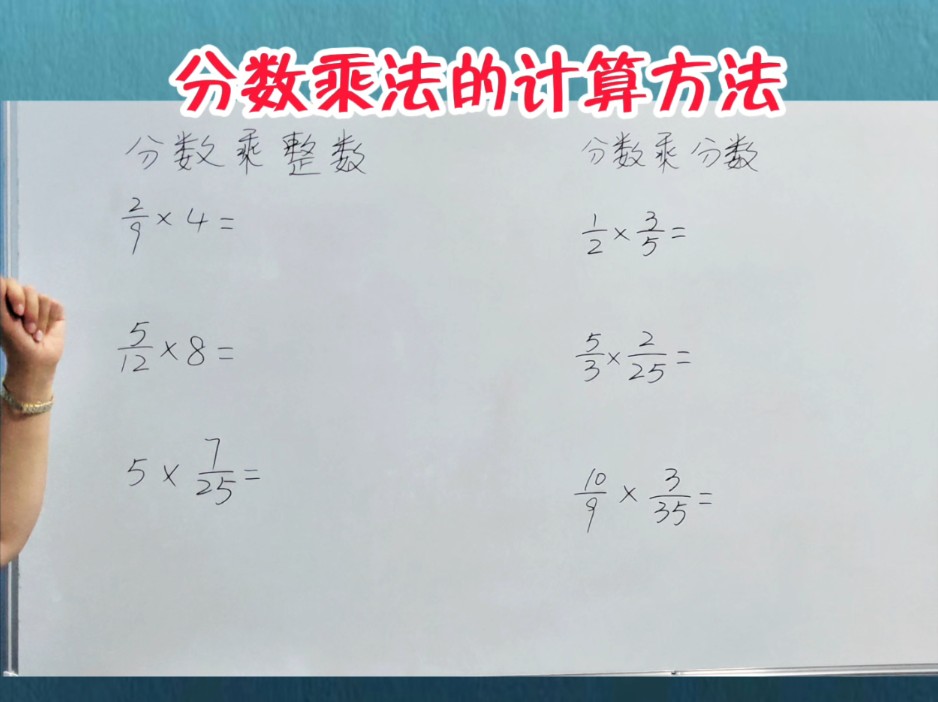 分数乘法的计算方法
分数乘整数
2/9 × 4 =
5/12 × 8 =
5 × 7/25 =
分数乘分数
1/2 × 3/5 =
5/3 × 2/25 =
10/9 × 3/35 =